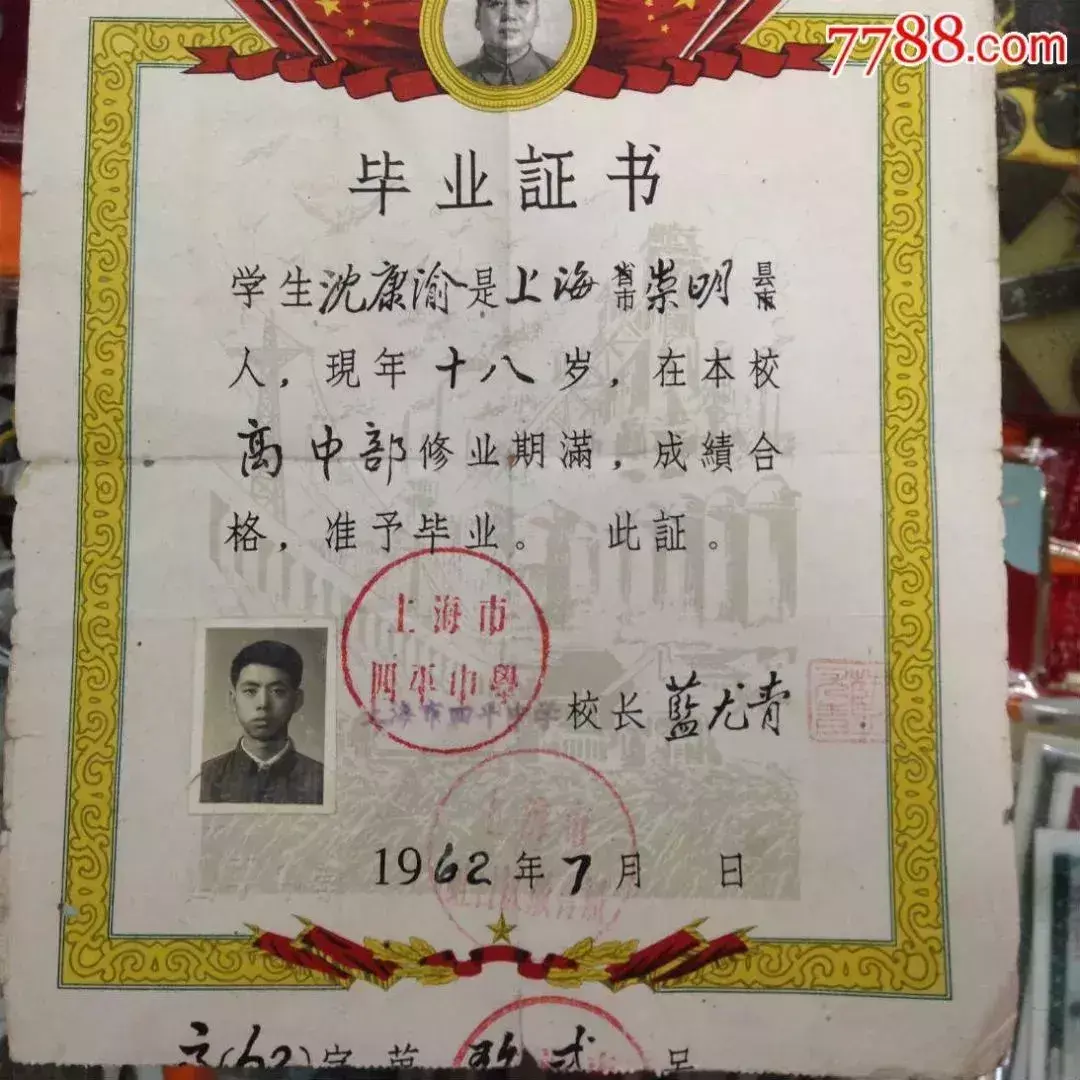 7788.com
毕业証书
学生沈康渝是上海省市崇明县市
人，現年十八岁，在本校
高中部修业期滿，成績合
格，准予毕业。 此証。
上海市
四平中學
上海市四平中学 校长 藍尤青
上海市
1962年7月 日